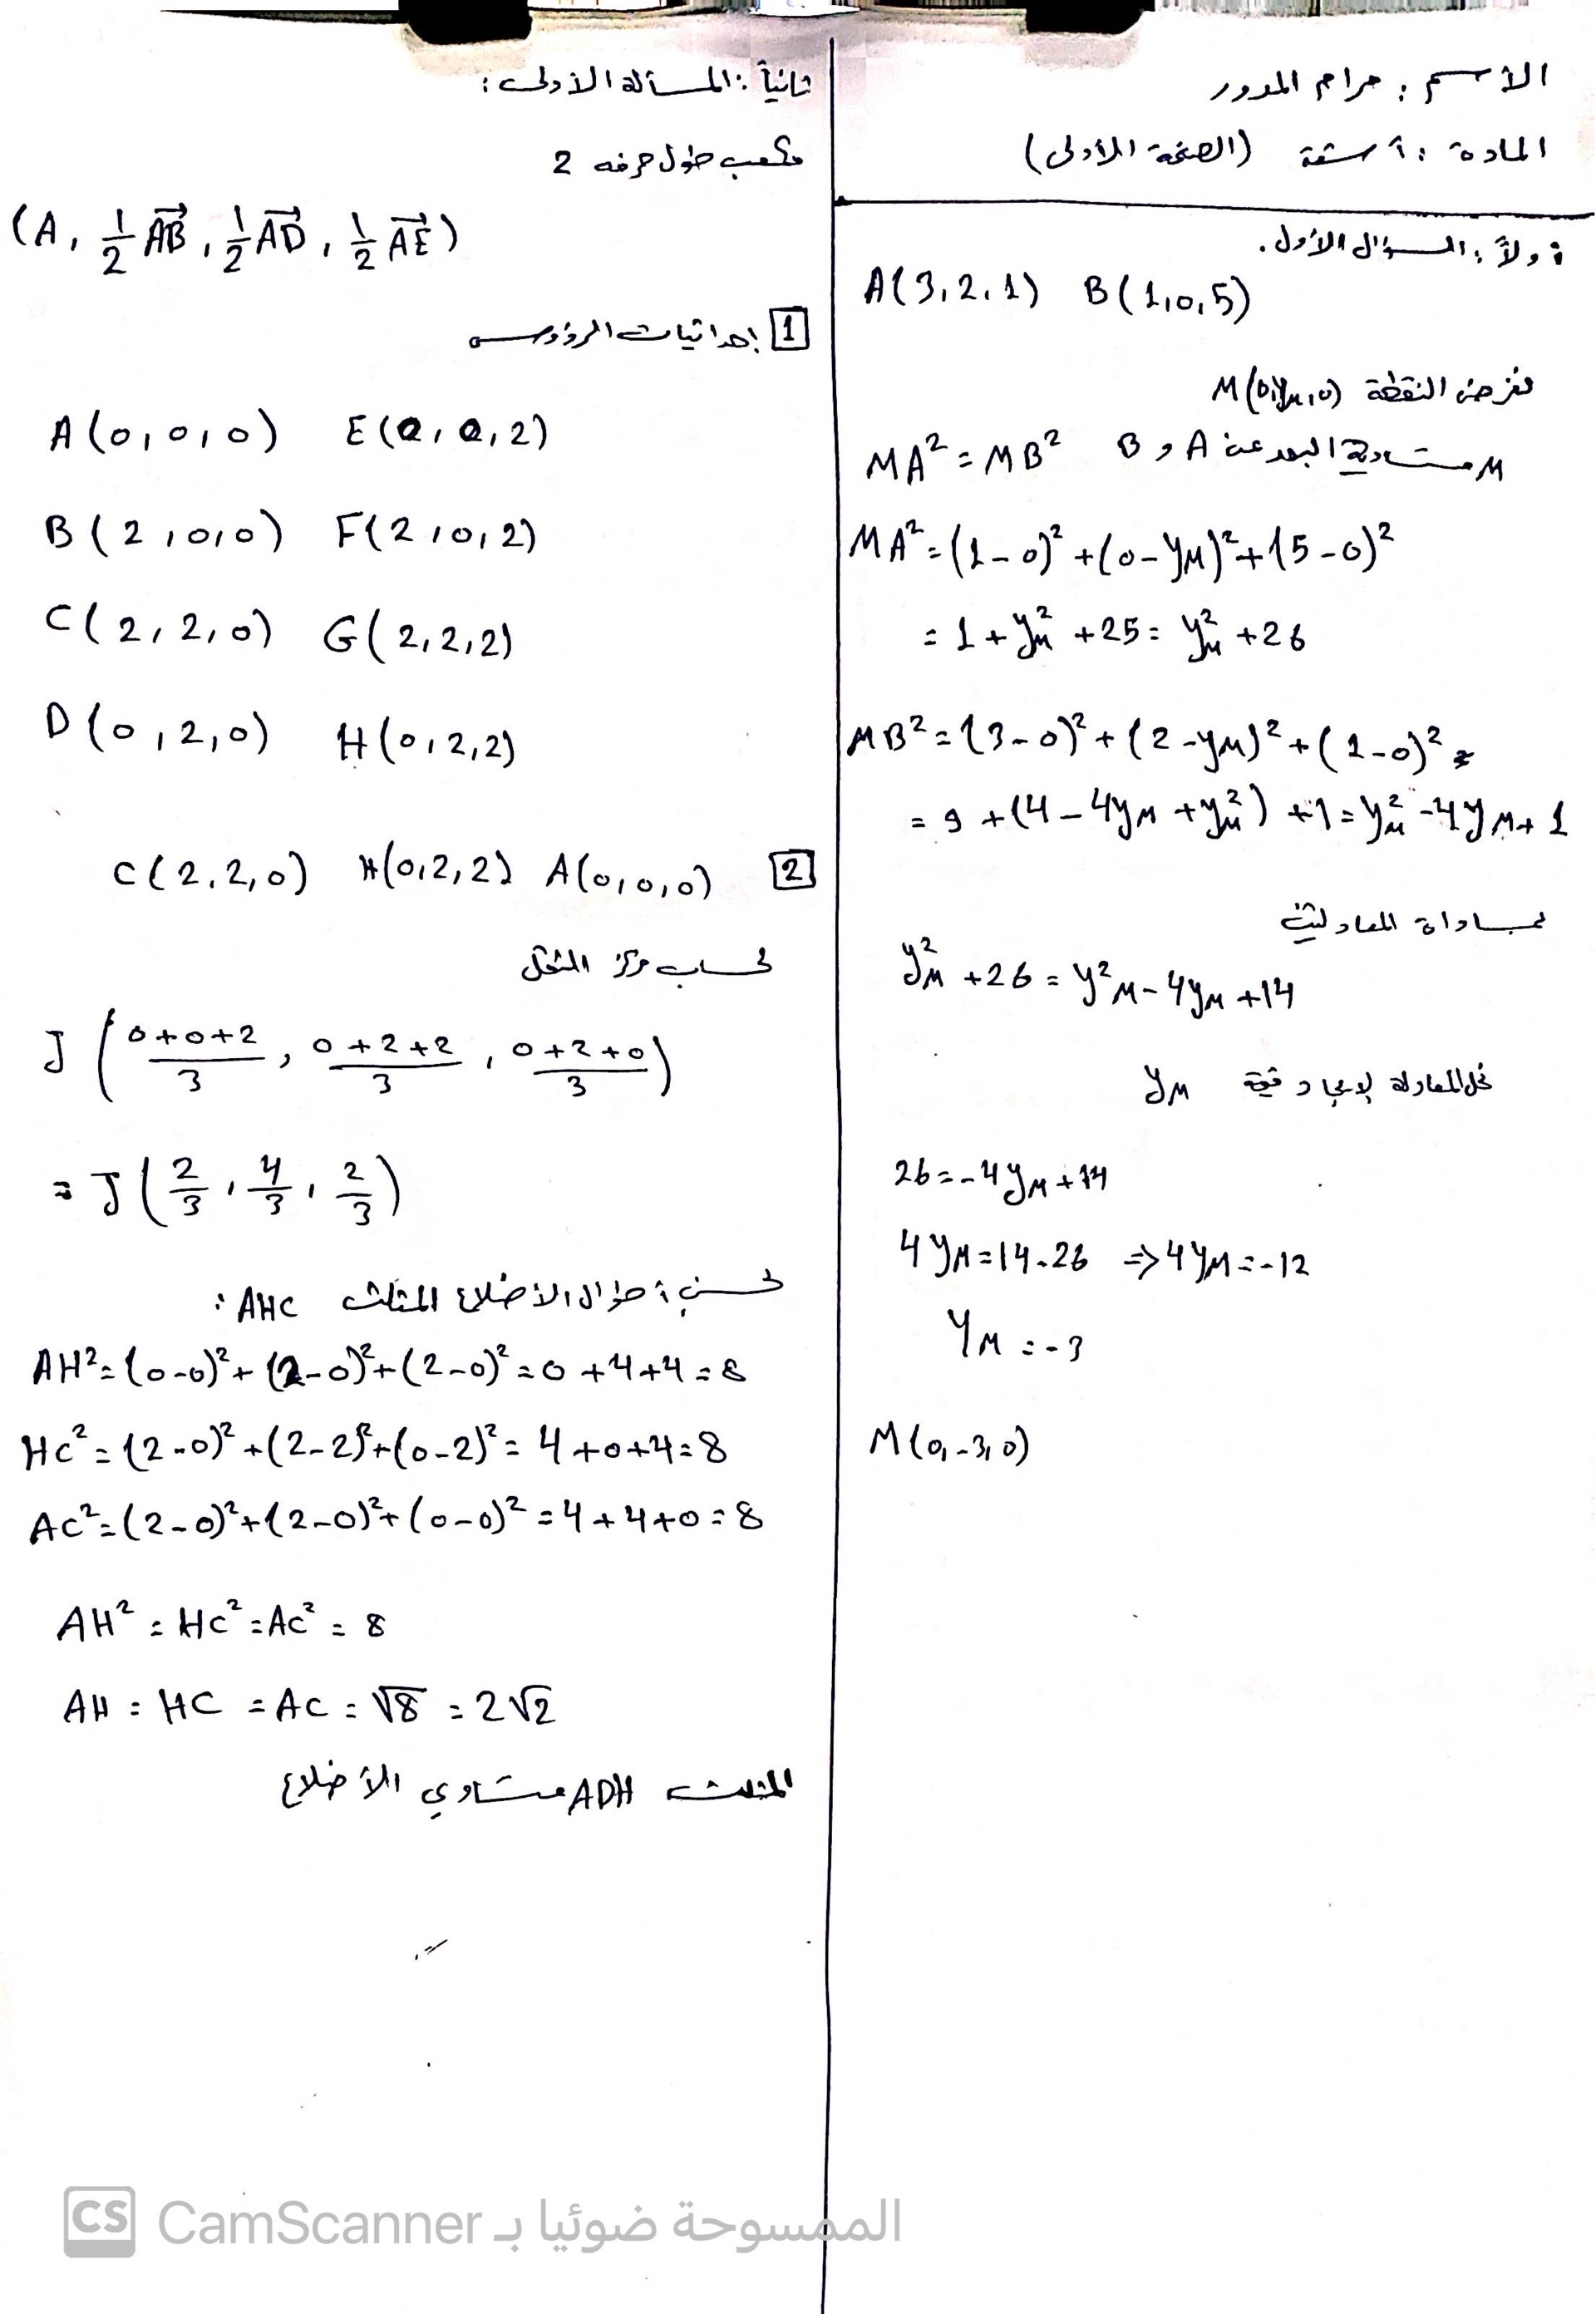 الأسم : مرام المدور
المادة : أ سقة (الصفحة الأولى)
أولاً : السؤال الأول .
A(3,2,1) B(1,0,5)
نفرض النقطة M(0,yM,0)
M متساوية البعد عن A و B MA² = MB²
MA² = (1-0)² + (0-yM)² + (5-0)²
= 1 + y²M + 25 = y²M + 26
MB² = (3-0)² + (2-yM)² + (1-0)² =
= 9 + (4 - 4yM + y²M) + 1 = y²M - 4yM + 1
بمساواة المعادلتين
y²M + 26 = y²M - 4yM + 14
نحل المعادلة لإيجاد قيمة yM
26 = -4yM + 14
4yM = 14-26 ⇒ 4yM = -12
yM = -3
M(0,-3,0)
ثانياً : المسألة الأولى :
مكعب طول حرفه 2
(A, 1/2 AB→, 1/2 AD→, 1/2 AE→)
1 إحداثيات الرؤوس
A(0,0,0) E(0,0,2)
B(2,0,0) F(2,0,2)
C(2,2,0) G(2,2,2)
D(0,2,0) H(0,2,2)
2 C(2,2,0) H(0,2,2) A(0,0,0)
لحساب مركز الثقل
J((0+0+2)/3, (0+2+2)/3, (0+2+0)/3)
= J(2/3, 4/3, 2/3)
لحسب أطوال الاضلاع المثلث AHC :
AH² = (0-0)² + (2-0)² + (2-0)² = 0+4+4 = 8
HC² = (2-0)² + (2-2)² + (0-2)² = 4+0+4 = 8
AC² = (2-0)² + (2-0)² + (0-0)² = 4+4+0 = 8
AH² = HC² = AC² = 8
AH = HC = AC = √8 = 2√2
المثلث ADH متساوي الأضلاع
CS CamScanner الممسوحة ضوئيا بـ